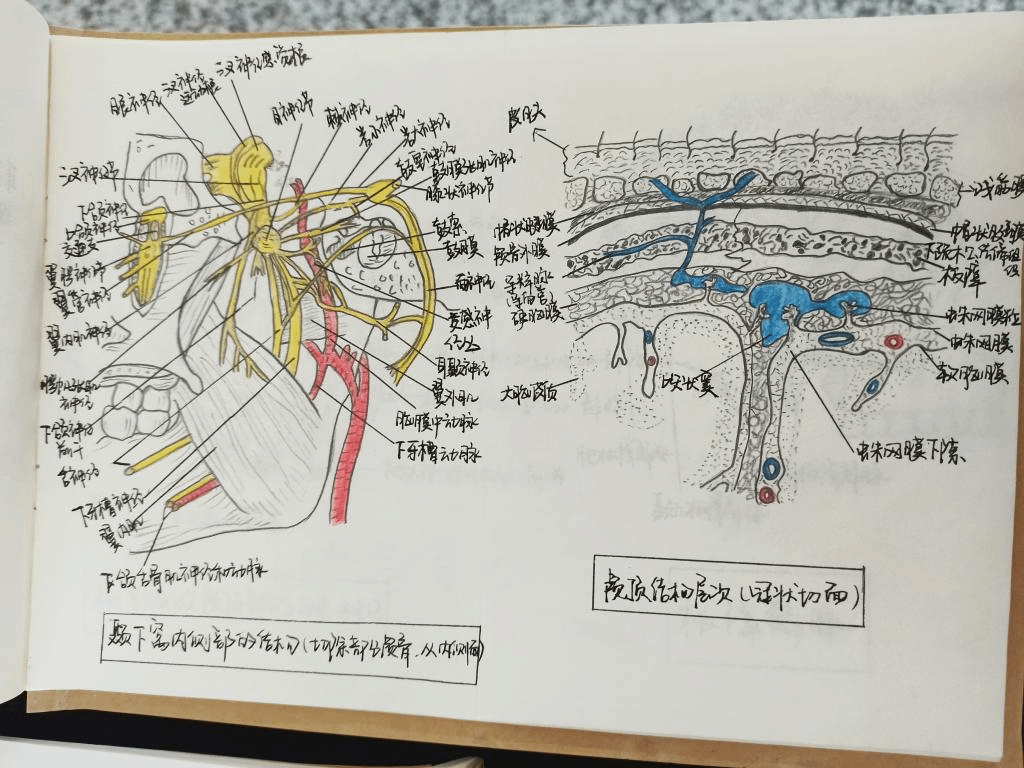 眼神经
三叉神经运动根
三叉神经感觉根
耳神经节
岩小神经
岩大神经
鼓索神经
鼓膜张肌神经
膝状神经节
三叉神经节
下颌神经
上颌神经
交通支
翼腭神经节
翼管神经
翼内肌神经
腭帆张肌
神经
下颌神经
前干
舌神经
下牙槽神经
翼内肌
下颌舌骨肌神经和动脉
鼓索
鼓膜
面神经
交感神
经丛
耳颞神经
翼外肌
脑膜中动脉
下牙槽动脉
颞下窝内侧部的结构(切除部分颅骨,从内侧面)
皮肤
浅筋膜
帽状腱膜
颅骨外膜
导静脉
导血管
硬脑膜
帽状腱膜
下疏松结缔组织
板障
蛛网膜粒
蛛网膜
软脑膜
大脑内页
蛛网膜下隙
颅顶结构层次(冠状切面)